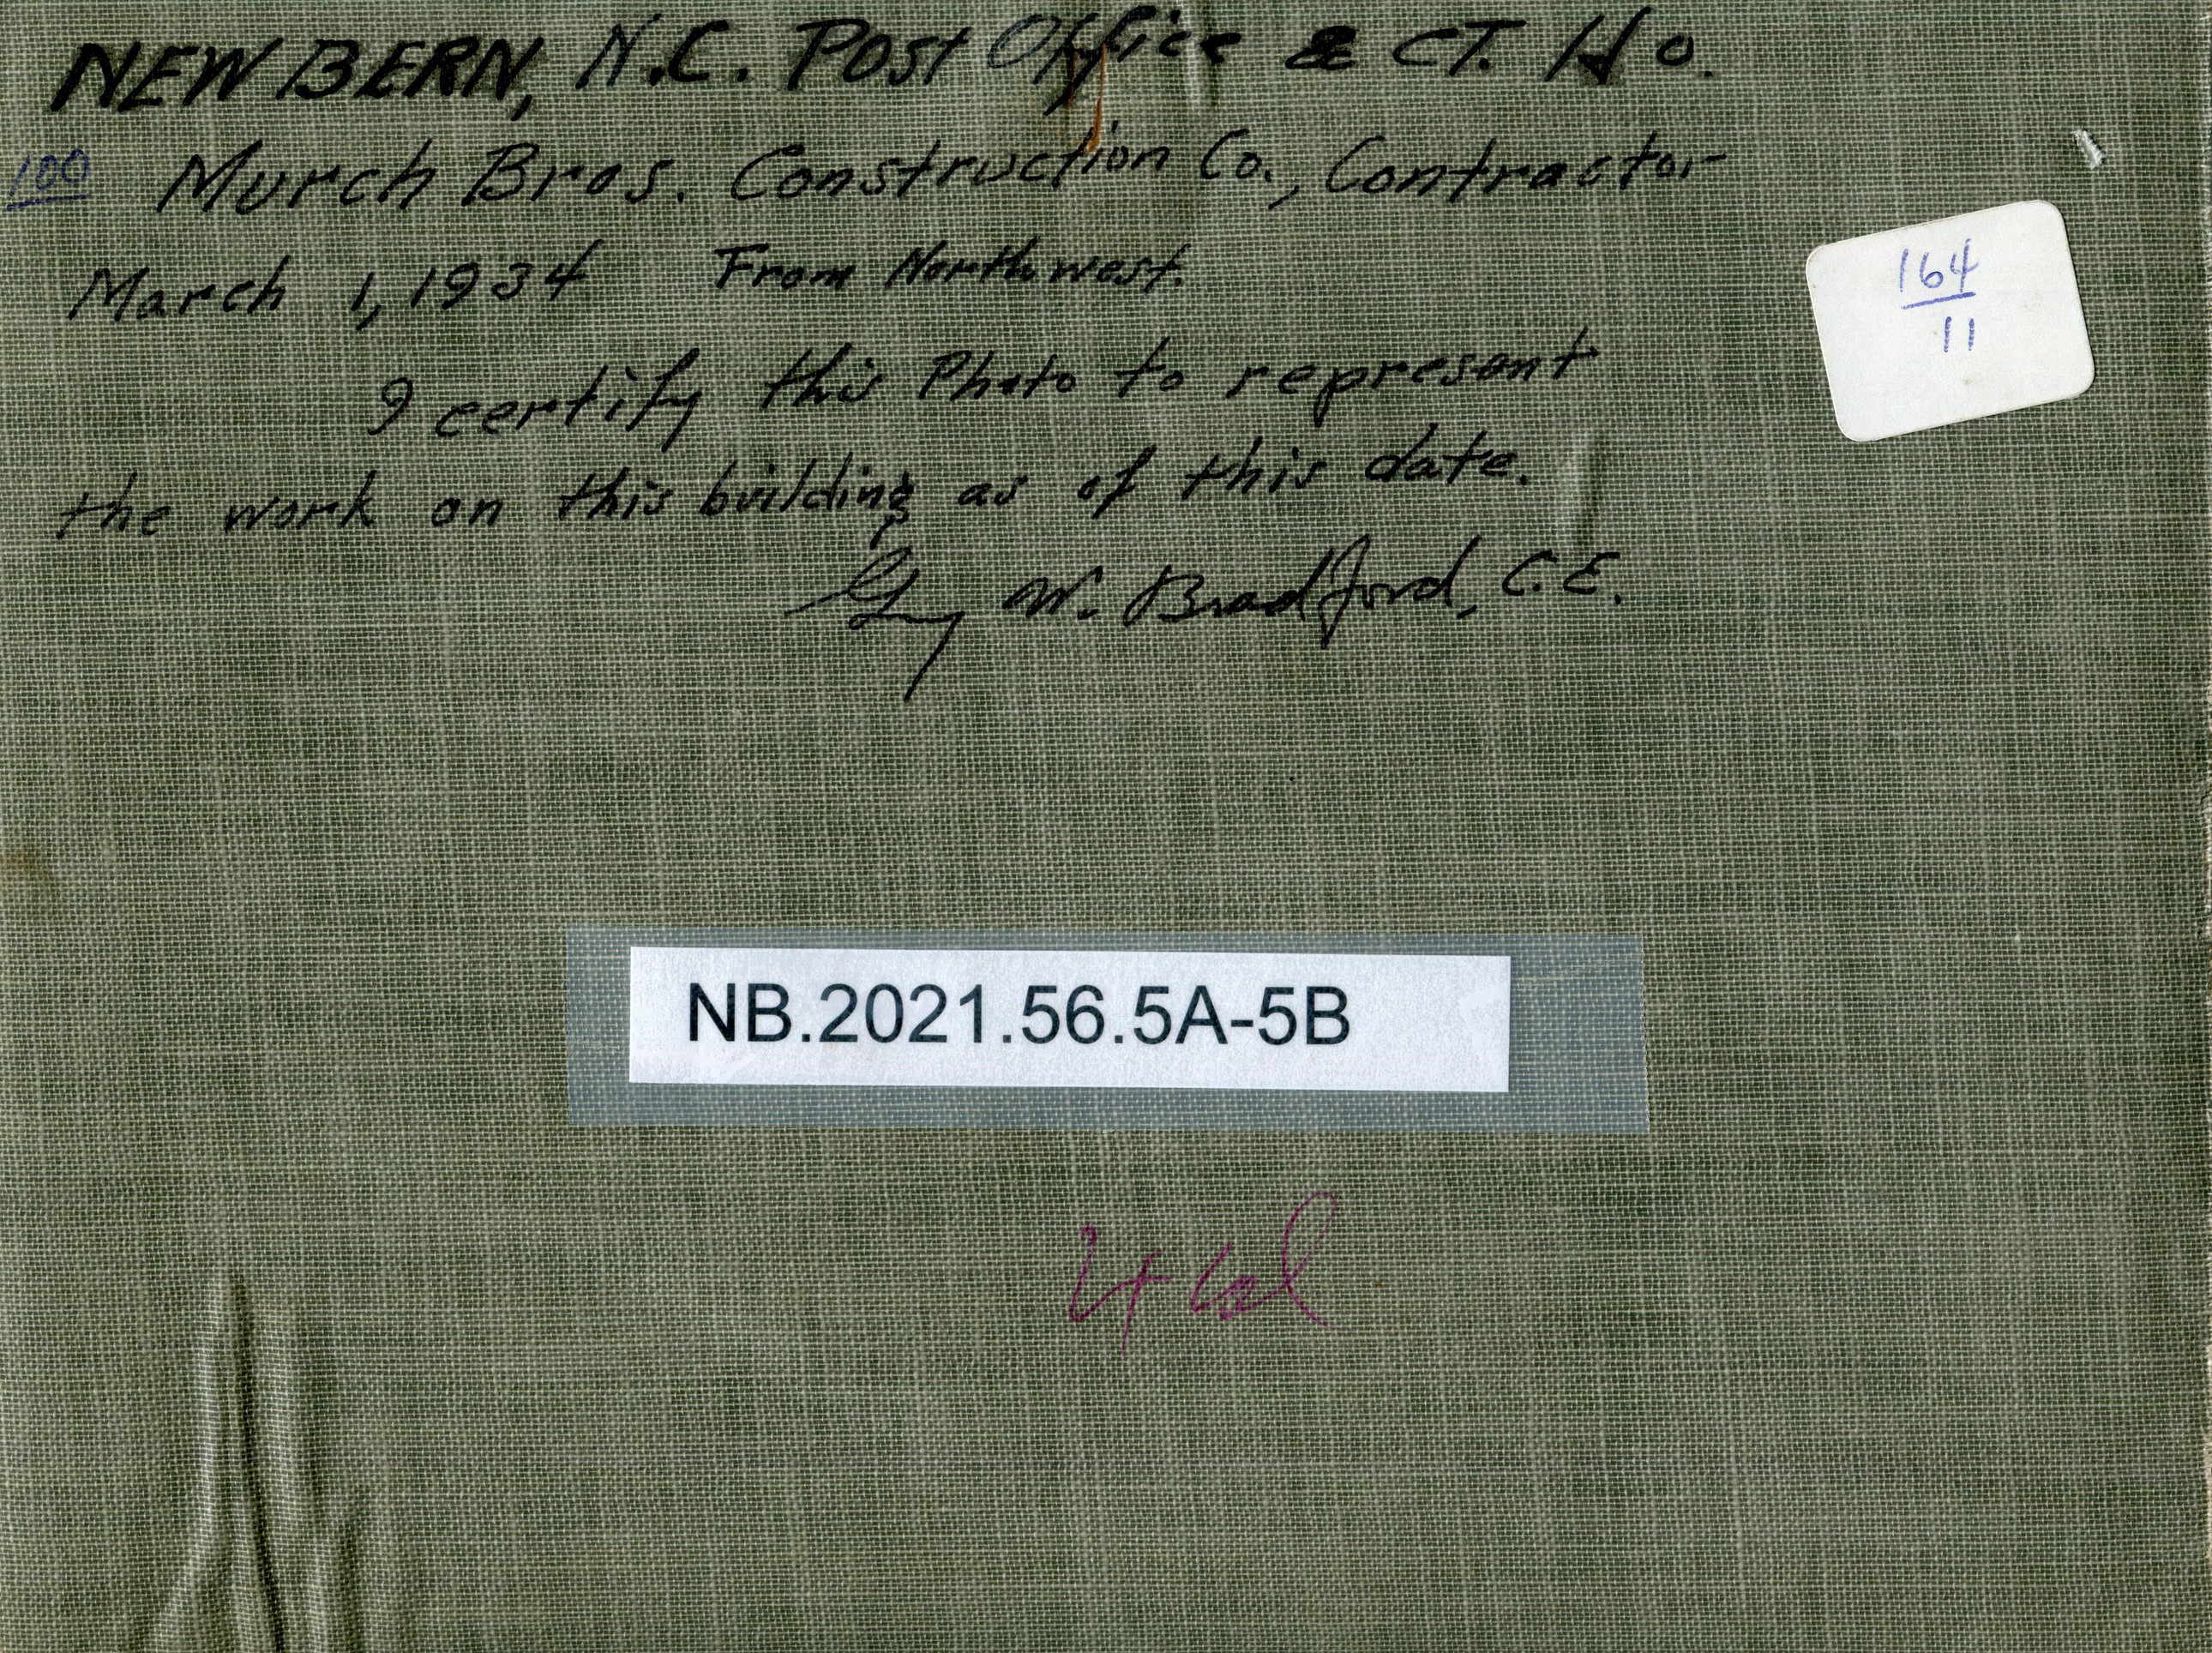 NEW BERN, N.C. Post Office & CT. Ho.
100 Murch Bros. Construction Co., Contractor
March 1, 1934 From Northwest.
164
11
I certify this Photo to represent
the work on this building as of this date.
Guy W. Bradford, C.E.
NB.2021.56.5A-5B
4